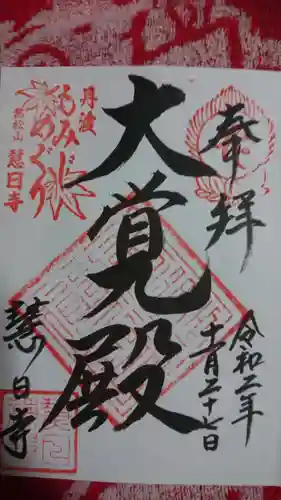 奉拝
大覚殿
令和二年
十一月二十七日
慧日寺
丹波
もみじ
めぐり
慧日寺